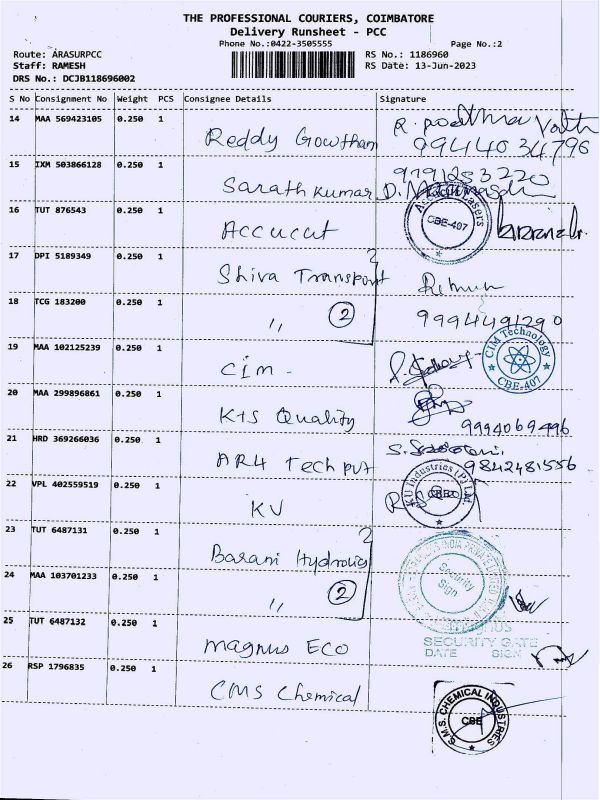 THE PROFESSIONAL COURIERS, COIMBATORE
Delivery Runsheet - PCC
Phone No.:0422-3505555 Page No.:2
Route: ARASURPCC RS No.: 1186960
Staff: RAMESH RS Date: 13-Jun-2023
DRS No.: DCJB118696002
S No Consignment No Weight PCS Consignee Details Signature
14 MAA 569423105 0.250 1 Reddy Gowtham
9944034796
15 IXM 503866128 0.250 1 Sarath Kumar
9791253220
16 TUT 876543 0.250 1 Accucut
CBE-407
17 DPI 5189349 0.250 1 Shiva Transport
18 TCG 183200 0.250 1 " 2
9994491290
19 MAA 102125239 0.250 1 Cim -
CIM Technology
CBE-407
20 MAA 299896861 0.250 1 K+S Quality
9994069496
21 HRD 369266036 0.250 1 AR4 Tech pvt
9842481556
22 VPL 402559519 0.250 1 KV
23 TUT 6487131 0.250 1 Barani Hydrolics
Security
Sign
24 MAA 103701233 0.250 1 " 2
25 TUT 6487132 0.250 1 Magnus ECO
SECURITY GATE
DATE SIGN
26 RSP 1796835 0.250 1 CMS Chemical
C.M.S. CHEMICAL INDUSTRIES
CBE